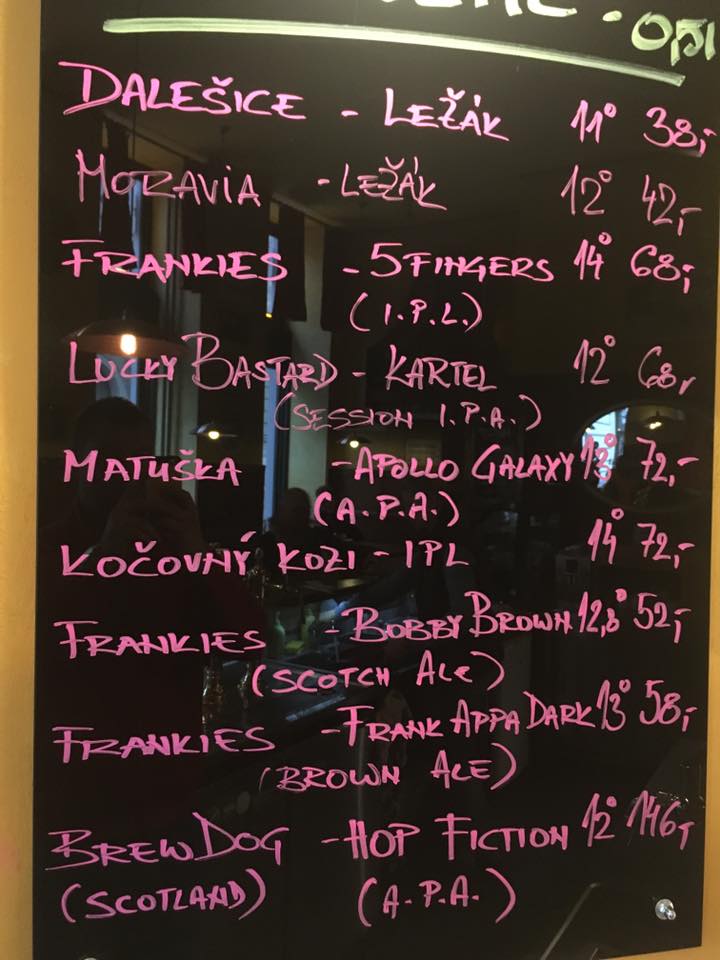 DALEŠICE - LEŽÁK 11° 38,-
MORAVIA - LEŽÁK 12° 42,-
FRANKIES - 5 FINGERS 14° 68,-
(I.P.L.)
LUCKY BASTARD - KARTEL 12° 68,-
(SESSION I.P.A.)
MATUŠKA - APOLLO GALAXY 13° 72,-
(A.P.A.)
KOČOVNÝ KOZI - IPL 14° 72,-
FRANKIES - BOBBY BROWN 12,8° 52,-
(SCOTCH ALE)
FRANKIES - FRANK APPA DARK 13° 58,-
(BROWN ALE)
BREWDOG - HOP FICTION 12° 146,-
(SCOTLAND) (A.P.A.)